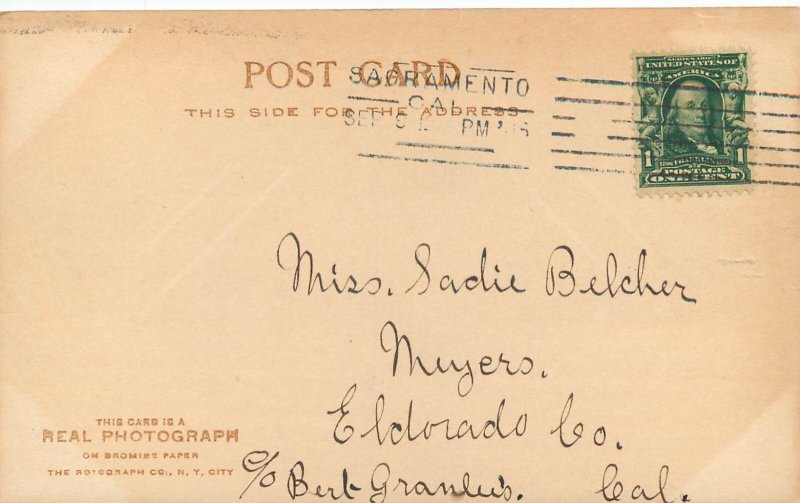 POST CARD
THIS SIDE FOR THE ADDRESS
SACRAMENTO
CAL
SEP PM '06
SERIES 1902
UNITED STATES OF
AMERICA
1 FRANKLIN 1
POSTAGE
ONE CENT
Miss. Sadie Belcher
Meyers.
Eldorado Co.
c/o Bert Cal.
THIS CARD IS A
REAL PHOTOGRAPH
ON BROMIDE PAPER
THE ROTOGRAPH CO., N. Y. CITY